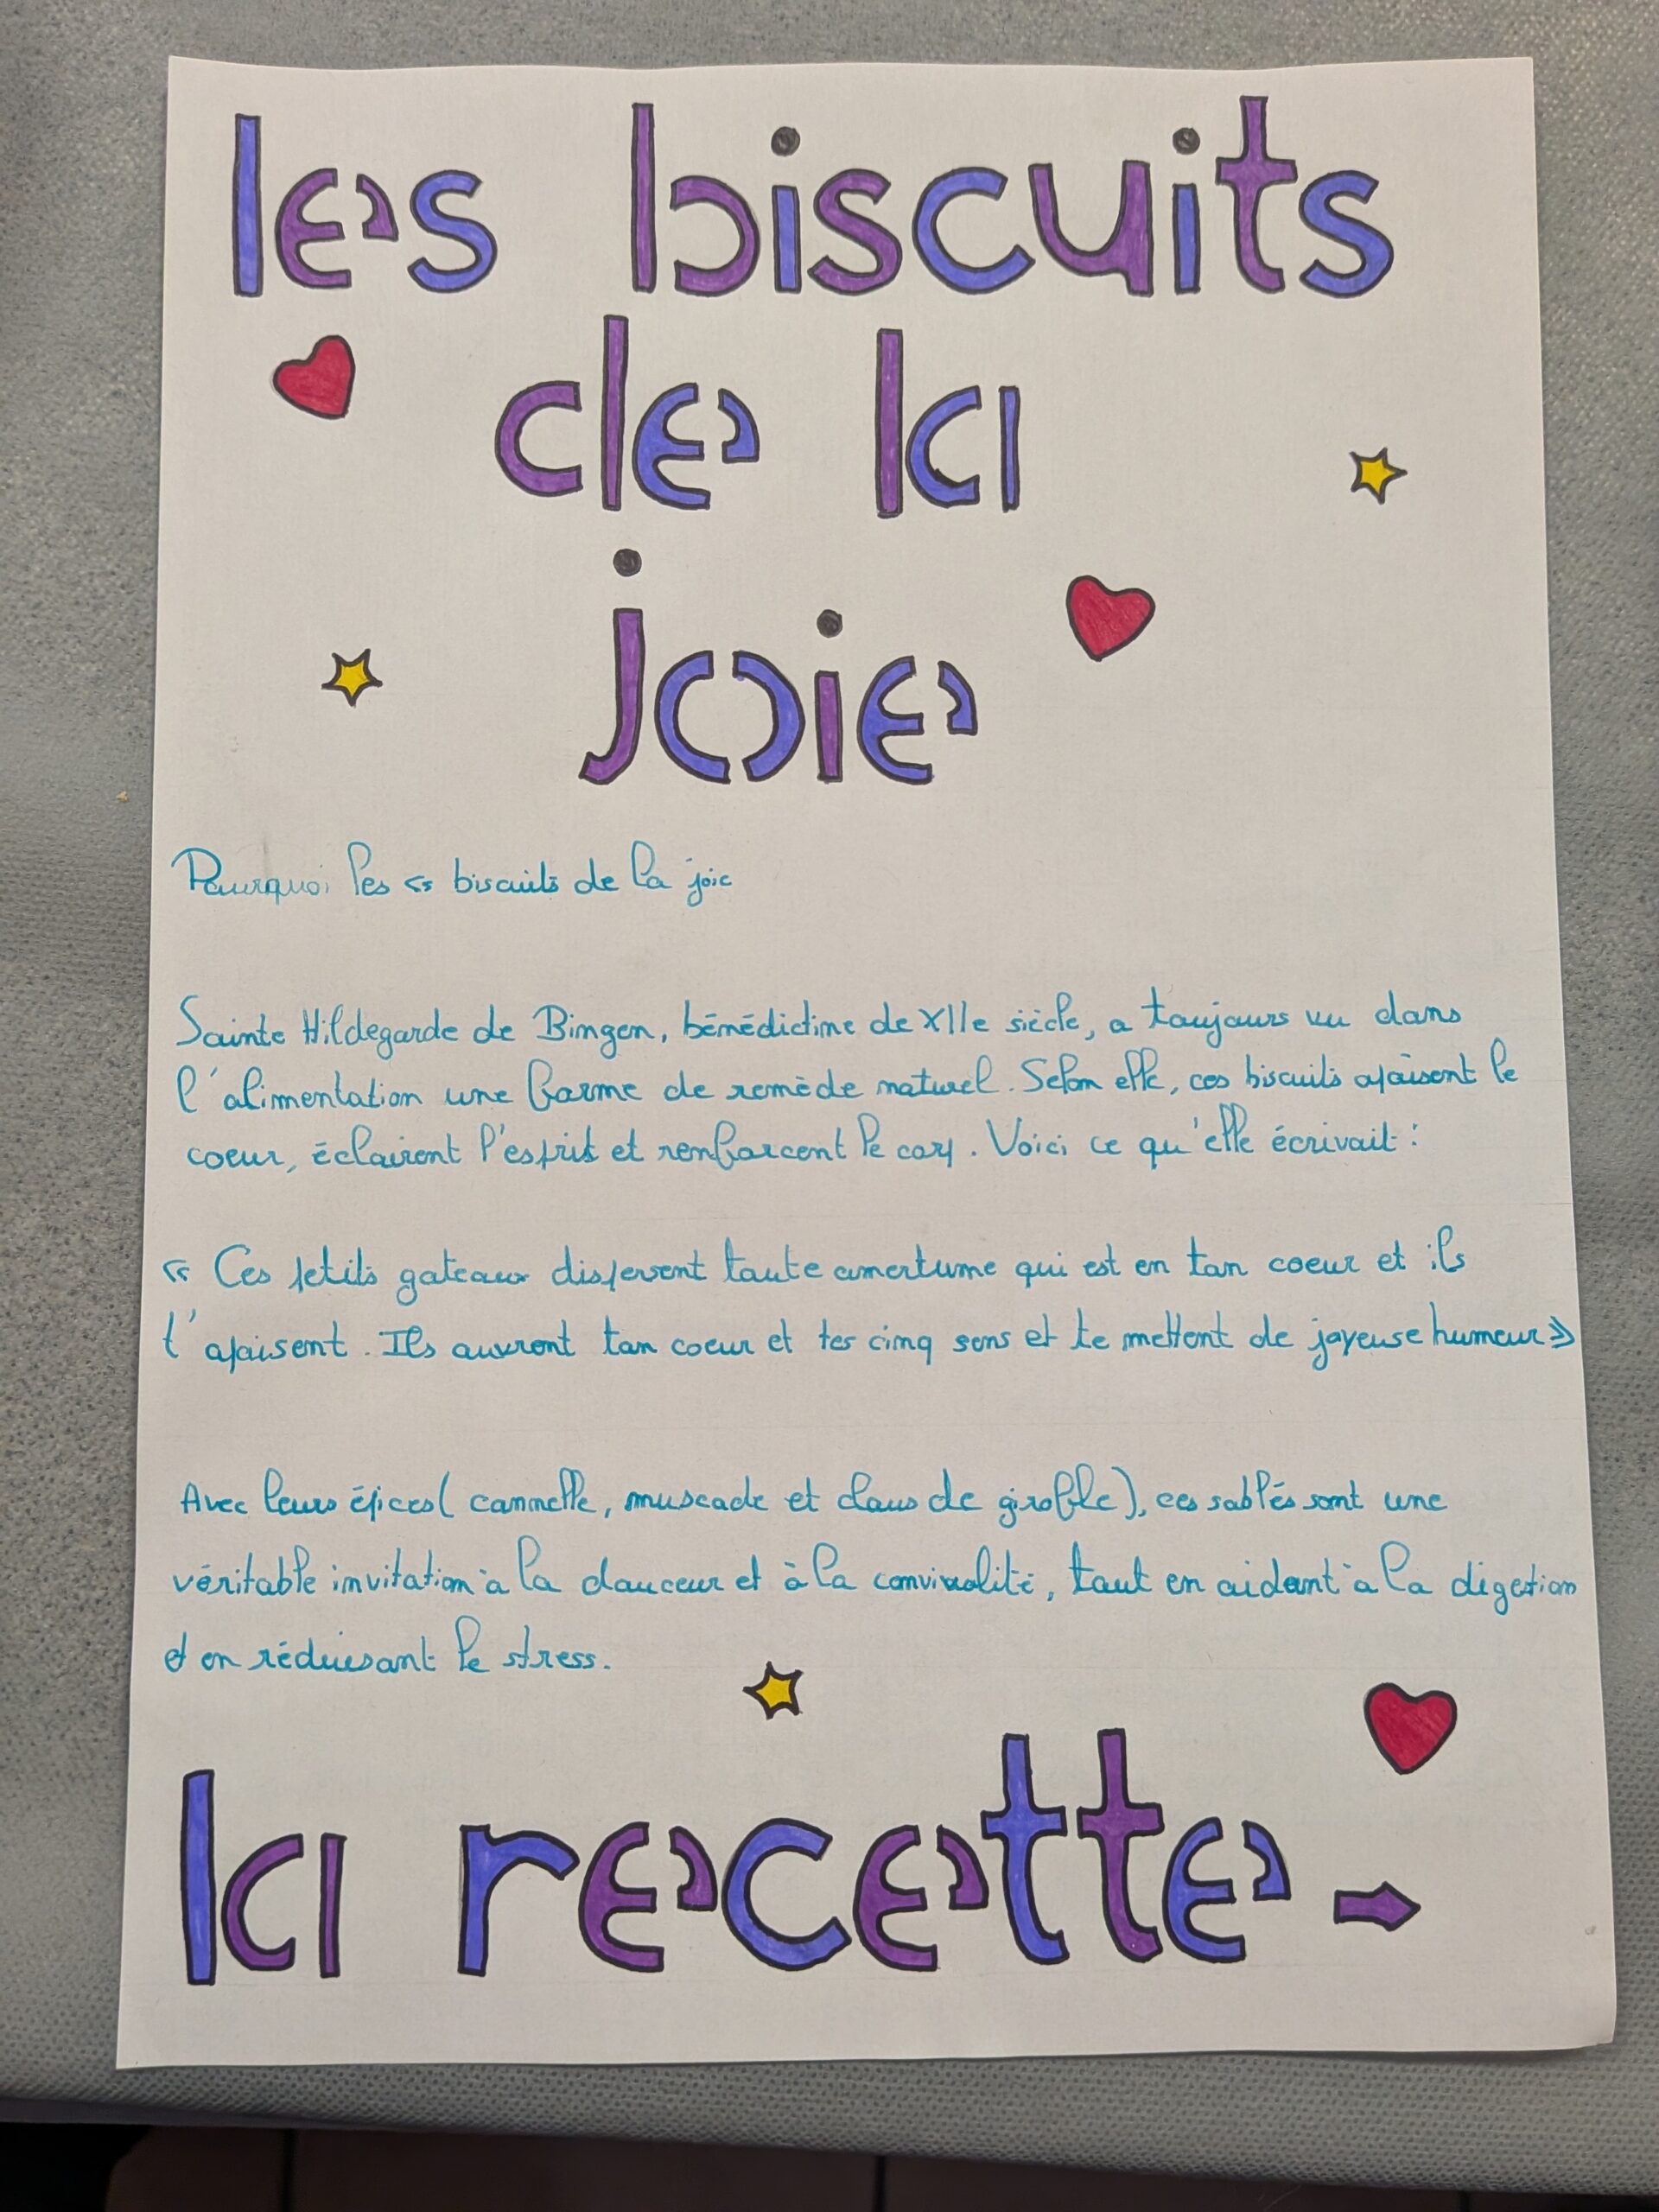 les biscuits
de la
joie
Pourquoi les « biscuits de la joie
Sainte Hildegarde de Bingen, bénédictine de XIIe siècle, a toujours vu dans
l'alimentation une forme de remède naturel. Selon elle, ces biscuits apaisent le
coeur, éclairent l'esprit et renforcent le corp. Voici ce qu'elle écrivait :
« Ces petits gateaux dispersent toute amertume qui est en ton coeur et ils
t'apaisent. Ils ouvrent ton coeur et tes cinq sens et te mettent de joyeuse humeur »
Avec leurs épices ( cannelle, muscade et clous de girofle ), ces sablés sont une
véritable invitation à la douceur et à la convivialité, tout en aidant à la digestion
et en réduisant le stress.
la recette